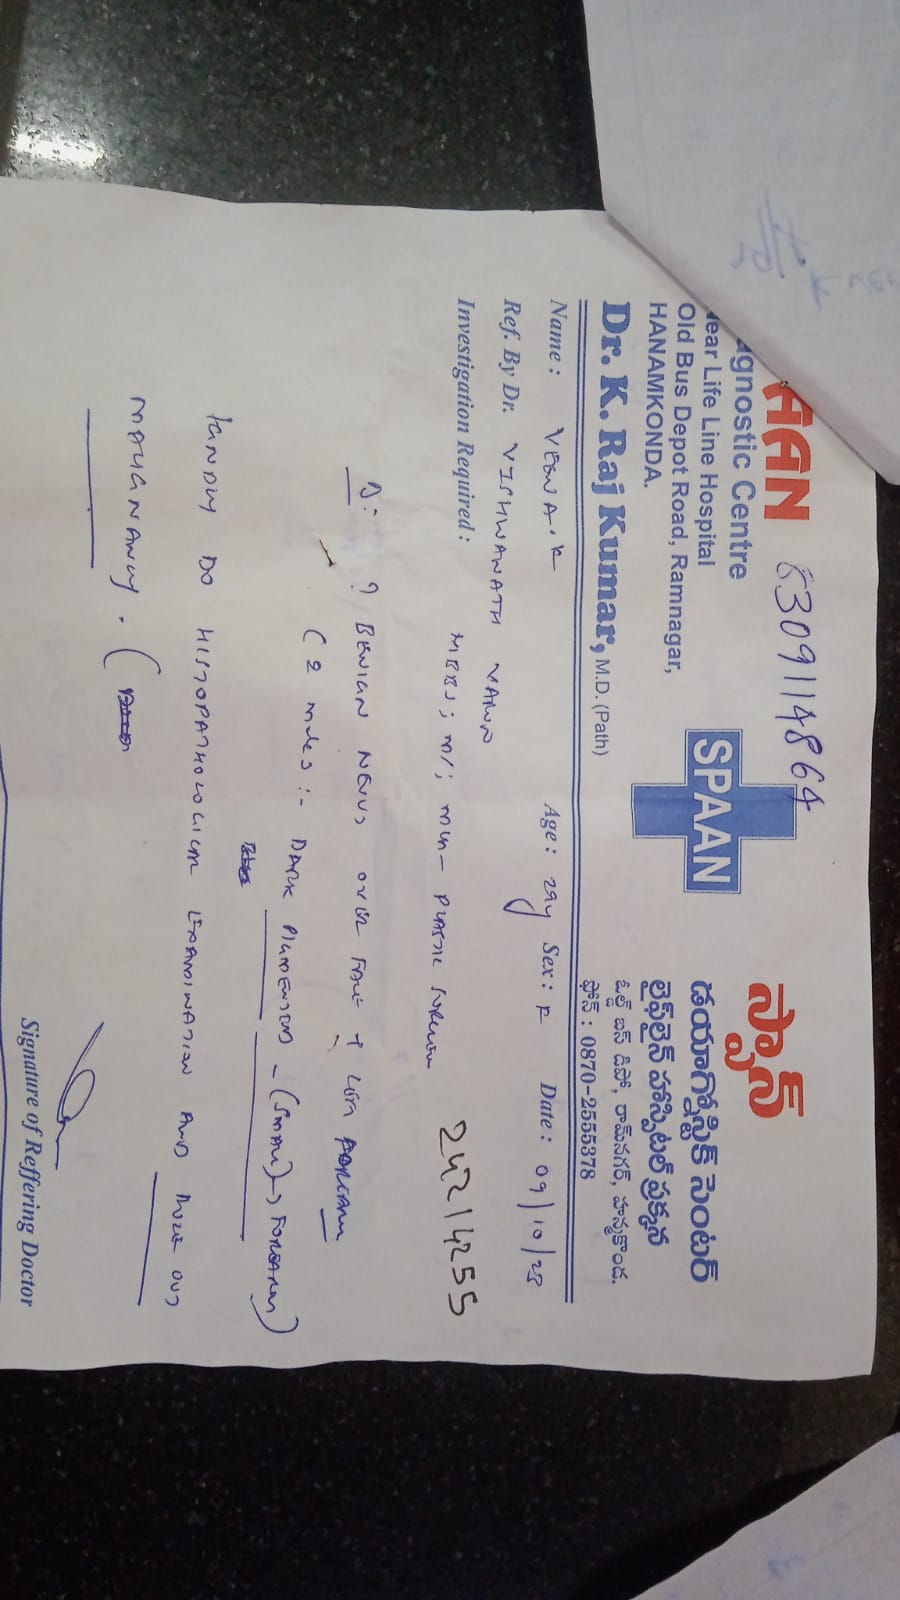 63091148 64
SPAAN
agnostic Centre
Near Life Line Hospital
Old Bus Depot Road, Ramnagar,
HANAMKONDA.
SPAAN
స్పాన్
డయాగ్నోస్టిక్ సెంటర్
లైఫ్‌లైన్ హాస్పిటల్ ప్రక్కన
ఓల్డ్ బస్ డిపో, రామ్‌నగర్, హన్మకొండ.
ఫోన్ : 0870-2555378
Dr. K. Raj Kumar, M.D. (Path)
Name : Age : 29y Sex : F Date : 09/10/25
Ref. By Dr. VISHWANATH
Investigation Required : MBBS; MS; MCh - PLASTIC
24214255
? BENIGN NEVUS OVER FACE +
(2 moles :- DARK PIGMENTED - (SMALL) FOREARM)
KINDLY DO HISTOPATHOLOGICAL EXAMINATION AND RULE OUT
MALIGNANCY. (
Signature of Reffering Doctor